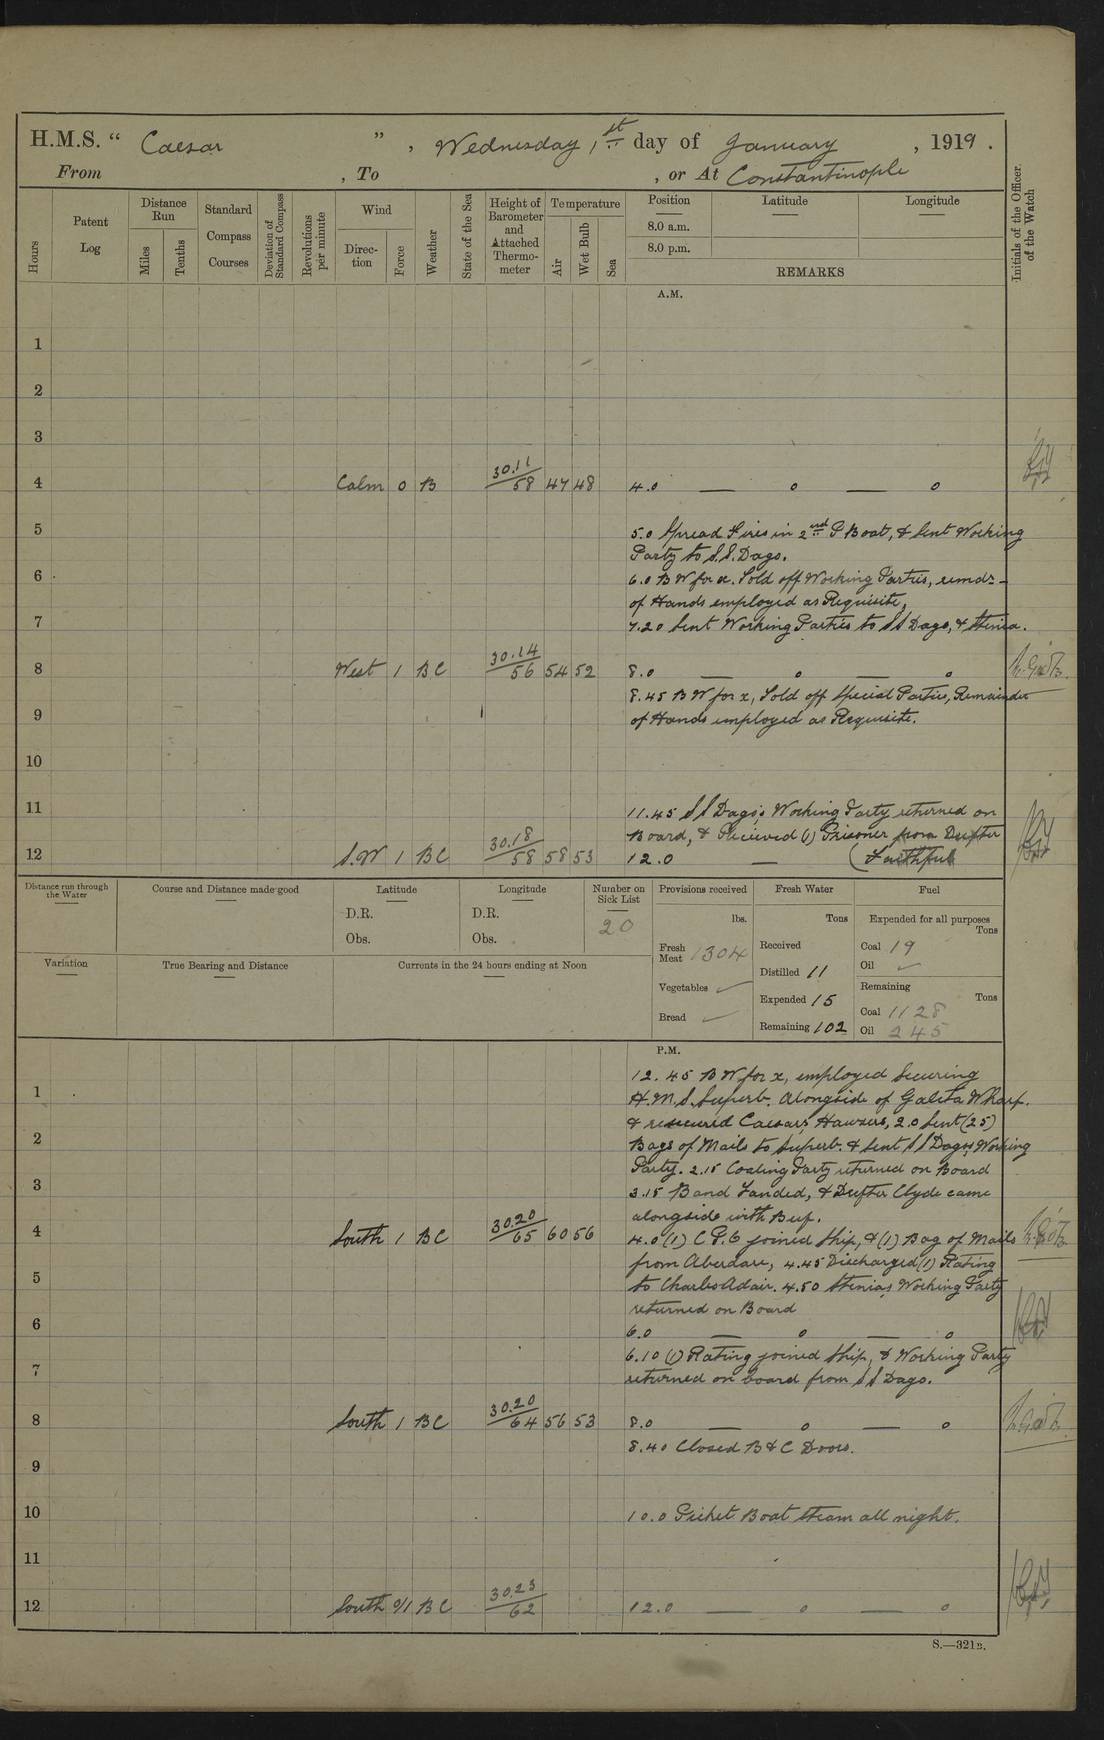 H.M.S. “ Caesar ” , Wednesday, 1st day of January , 1919 .
From , To , or At Constantinople
Hours
Patent Log
Distance Run
Miles
Tenths
Standard Compass Courses
Deviation of Standard Compass
Revolutions per minute
Wind
Direc- tion
Force
Weather
State of the Sea
Height of Barometer and Attached Thermo- meter
Temperature
Air
Wet Bulb
Sea
Position
8.0 a.m.
8.0 p.m.
Latitude
Longitude
REMARKS
Initials of the Officer of the Watch
A.M.
1
2
3
4 Calm 0 B 30.11/58 47 48 4.0 — 0 — 0
5 5.0 Spread Fires in 2nd P Boat, & Sent Working
Party to S.S. Dago.
6 6.0 B W for a. Told off Working Parties, remdr-
of Hands employed as Requisite,
7 7.20 Sent Working Parties to SS Dago, & Stenia.
8 West 1 BC 30.14/56 54 52 8.0 — 0 — 0
8.45 B W for x, Told off Special Parties, Remainder
9 of Hands employed as Requisite.
10
11 11.45 SS Dago's Working Party returned on
Board, & Recieved (1) Prisoner from Drifter
12 S.W 1 BC 30.18/58 58 53 12.0 — (Faithful
Distance run through the Water
Course and Distance made good
Latitude
D.R.
Obs.
Longitude
D.R.
Obs.
Number on Sick List
20
Provisions received
lbs.
Fresh Meat 1304
Vegetables
Bread
Fresh Water
Tons
Received
Distilled 11
Expended 15
Remaining 102
Fuel
Expended for all purposes
Tons
Coal 19
Oil
Remaining
Tons
Coal 1128
Oil 245
Variation
True Bearing and Distance
Currents in the 24 hours ending at Noon
P.M.
12.45 B W for x, employed Securing
1 H.M.S. Superb. Alongside of Galita Wharf.
& resecured Caesars Hawsers, 2.0 Sent (25)
2 Bags of Mails to Superb. & Sent SS Dagos Working
Party. 2.15 Coaling Party returned on Board
3 3.15 Band Landed, & Drifter Clyde came
alongside with Beef.
4 South 1 BC 30.20/65 60 56 4.0 (1) C P.O joined Ship, & (1) Bag of Mails
from Aberdare, 4.45 Discharged (1) Rating
5 to Charles Adair. 4.50 Stenias Working Party
returned on Board
6 6.0 — 0 — 0
6.10 (1) Rating joined Ship, & Working Party
7 returned on board from SS Dago.
8 South 1 BC 30.20/64 56 53 8.0 — 0 — 0
8.40 Closed B & C Doors.
9
10 10.0 Picket Boat Steam all night.
11
12 South 0/1 BC 30.23/62 12.0 — 0 — 0
S.—321B.